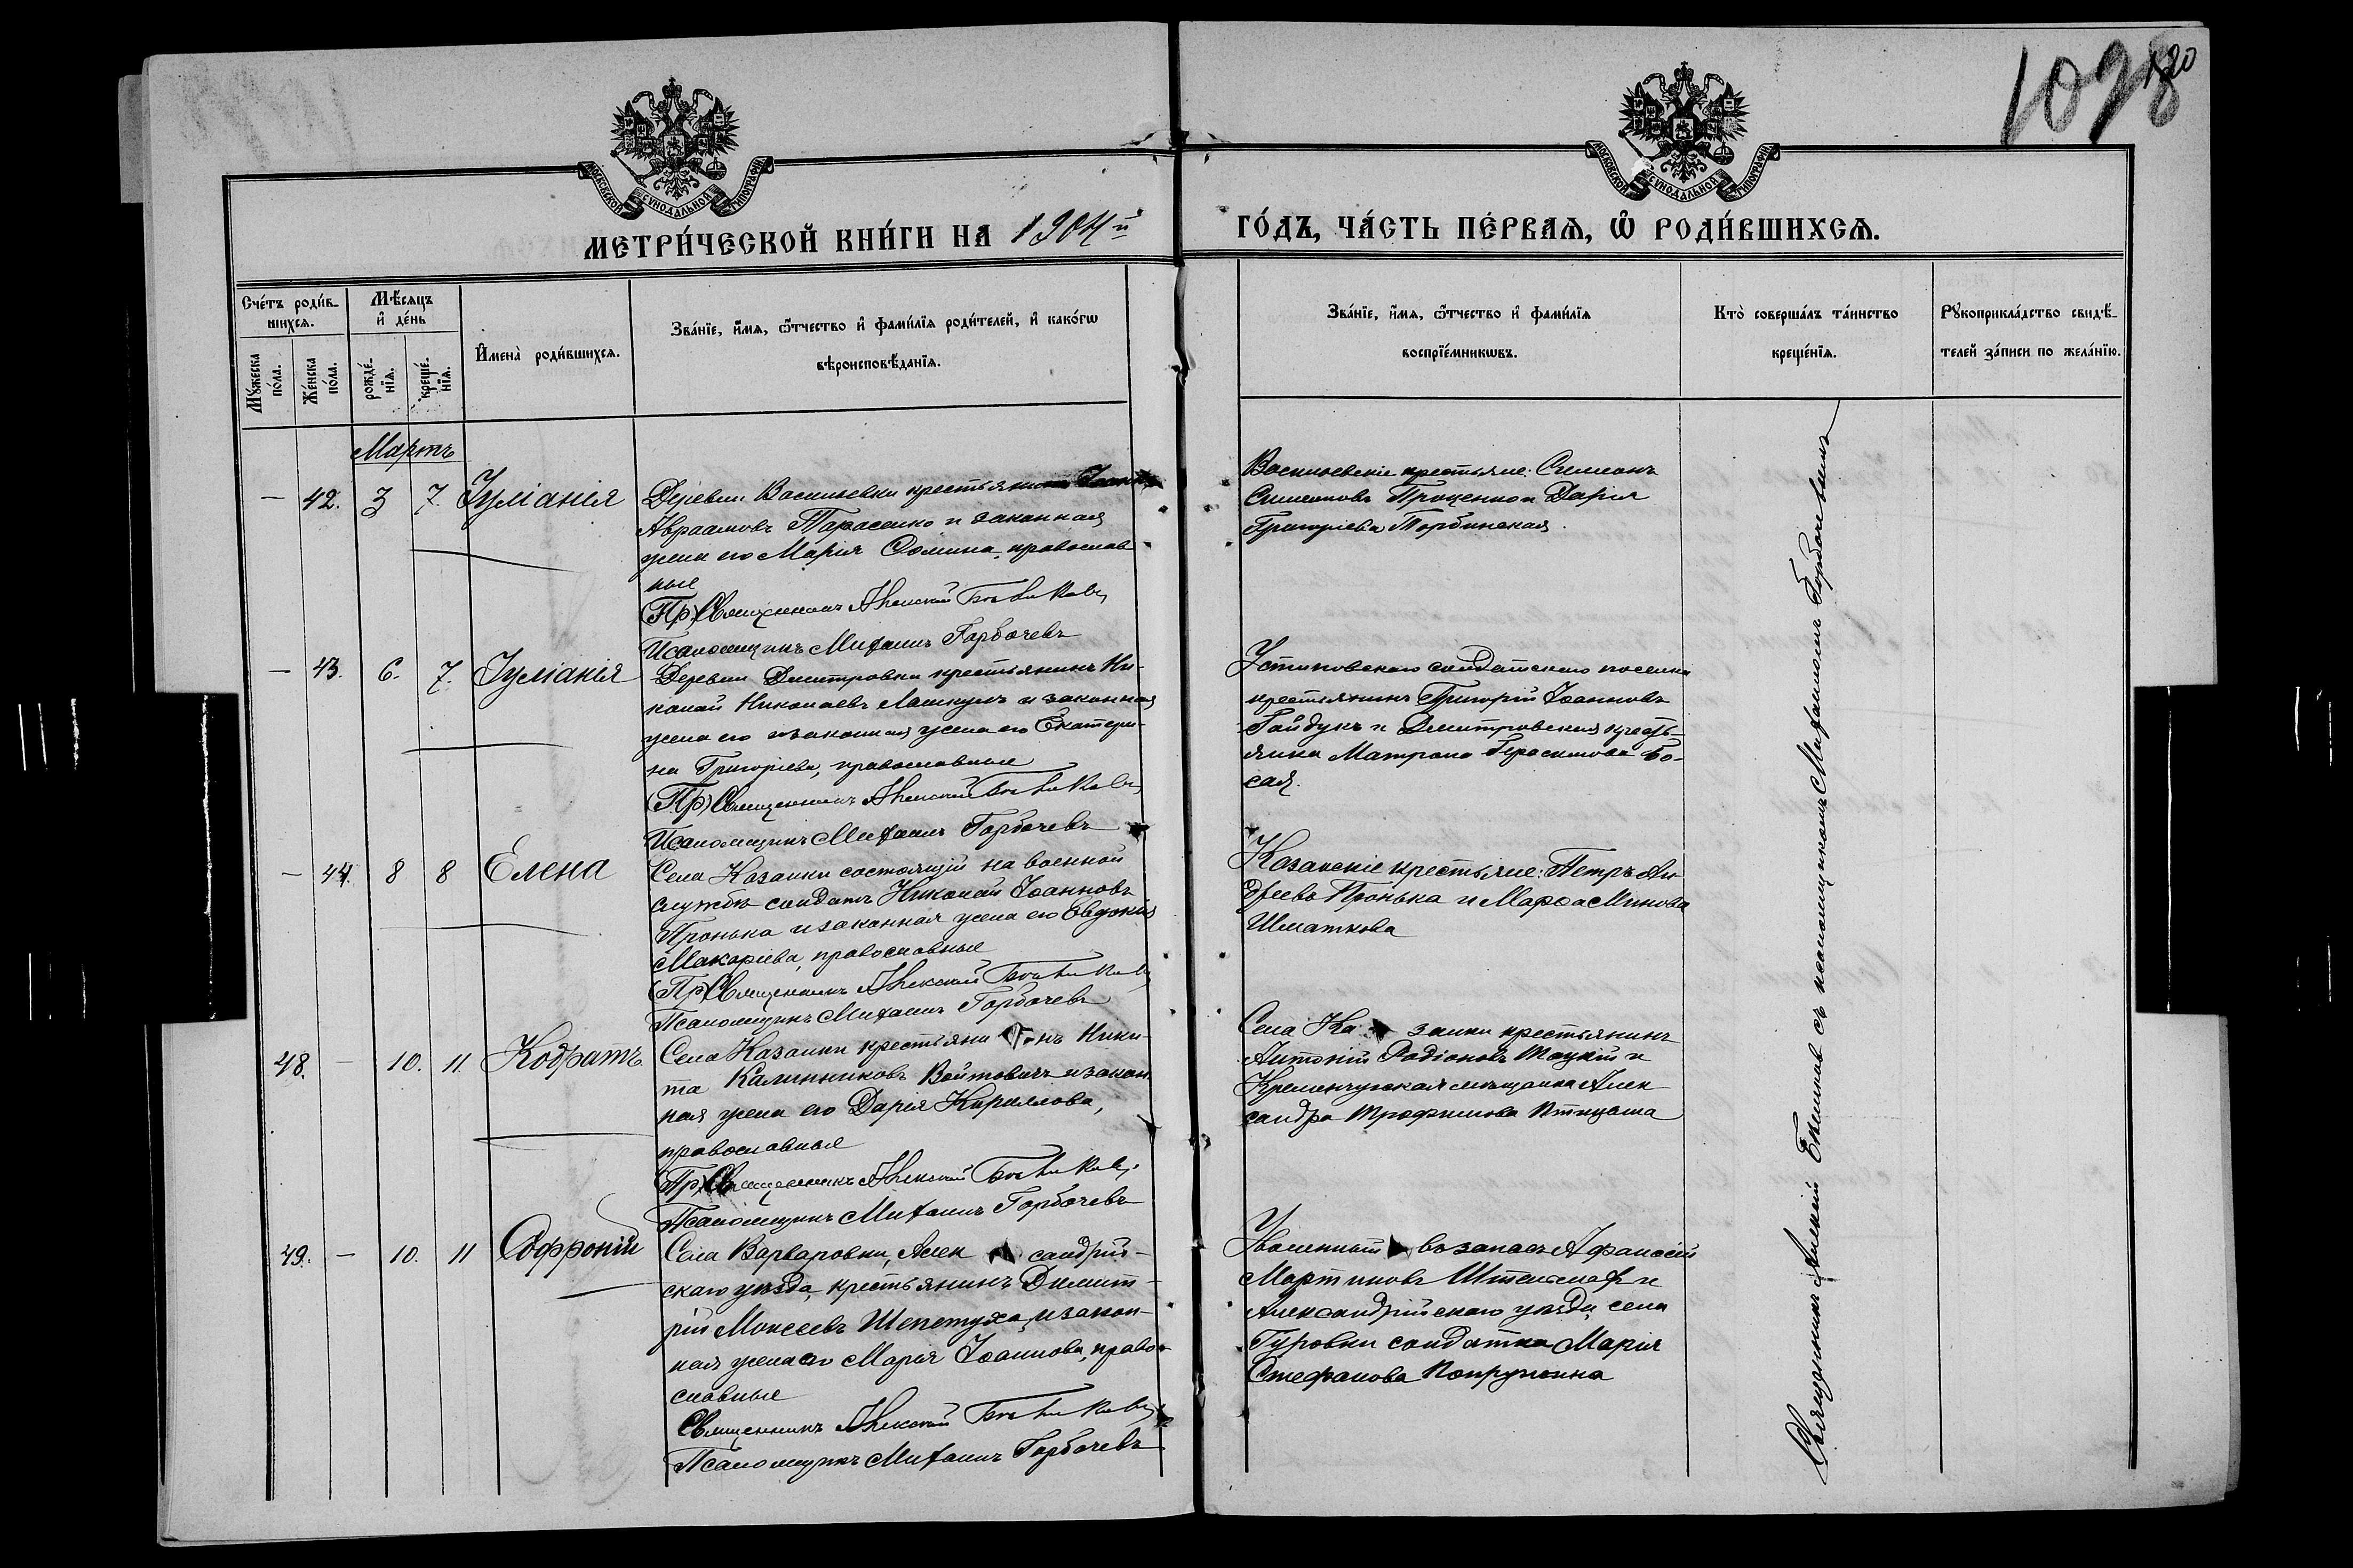 1098
120
МОСКОВСКОЙ СѴНОДАЛЬНОЙ ТИПОГРАФІИ
МОСКОВСКОЙ СѴНОДАЛЬНОЙ ТИПОГРАФІИ
МЕТРИ́ЧЕСКОЙ КНИ́ГИ НА 1904й ГО́ДЪ, ЧА́СТЬ ПЕ́РВАѦ, Ѽ РОДИ́ВШИХСѦ.
Сче́тъ роди́в-
шихсѧ.
Мꙋ́жеска
по́ла.
Же́нска
по́ла.
Мѣ́сѧцъ
и҆ де́нь
рожде́-
нїѧ.
креще́-
нїѧ.
И҆мена̀ роди́вшихсѧ.
Зва́нїе, и҆́мѧ, ѻ҆́тчество и҆ фами́лїѧ роди́телей, и҆ како́гѡ
вѣроисповѣ́данїѧ.
Зва́нїе, и҆́мѧ, ѻ҆́тчество и҆ фами́лїѧ
воспрїе́мникѡвъ.
Кто̀ соверша́лъ та́инство
креще́нїѧ.
Рꙋкоприкла́дство свидѣ́-
телей за́писи по жела́нїю.
Мартъ
— 42. 3 7. Іуліанія
Деревни Васильевки крестьянинъ
Авраамовъ Тарасенко и законная
жена его Марія Ѳомина, православ
ные
(Пр) Священникъ Алексій
Псаломщикъ Михаилъ Горбачевъ
Васильевскіе крестьяне: Симеонъ
Симеоновъ Проценко и Дарія
Григоріева Торбинская.
— 43. 6. 7. Іуліанія
Деревни Дмитровки крестьянинъ Ни-
колай Николаевъ Лашкулъ и законная
жена его и законная жена его Екатери-
на Григоріева, православные
(Пр) Священникъ Алексій
Псаломщикъ Михаилъ Горбачевъ
Устиновскаго солдатскаго поселка
крестьянинъ Григорій Іоанновъ
Гайдукъ и Дмитровская кресть-
янка Матрона Герасимова Бо-
сая.
— 44. 8 8 Елена
Села Казанки состоящій на военной
службѣ солдатъ Николай Іоанновъ
Пронька и законная жена его Евдокія
Макаріева, православные
(Пр) Священникъ Алексій
Псаломщикъ Михаилъ Горбачевъ
Казанскіе крестьяне: Петръ Ан
дреевъ Пронька и Марѳа Минова
Шматкова
48. — 10. 11 Кодратъ
Села Казанки крестьяни нъ Ники-
та Калинниковъ Войтовичъ и закон
ная жена его Дарія Кириллова,
православные
(Пр) Священникъ Алексій
Псаломщикъ Михаилъ Горбачевъ
Села Ка занки крестьянинъ
Антоній Родіоновъ Тацкій и
Кременчугская мѣщанка Алек
сандра Трофимова Птицына
49. — 10. 11 Софроній
Села Варваровки, Алек сандрій-
скаго уѣзда, крестьянинъ Димит-
рій Моисеевъ Шепетуха, и закон-
ная жена его Марія Іоаннова, право-
славные
Священникъ Алексій
Псаломщикъ Михаилъ Горбачевъ
Уволенный въ запасъ Аѳанасій
Мартиновъ и
Александрійскаго уѣзда, села
Гуровки солдатка Марія
Стефанова Попружина
Священникъ Алексій съ псаломщикомъ Михаиломъ Горбачевымъ